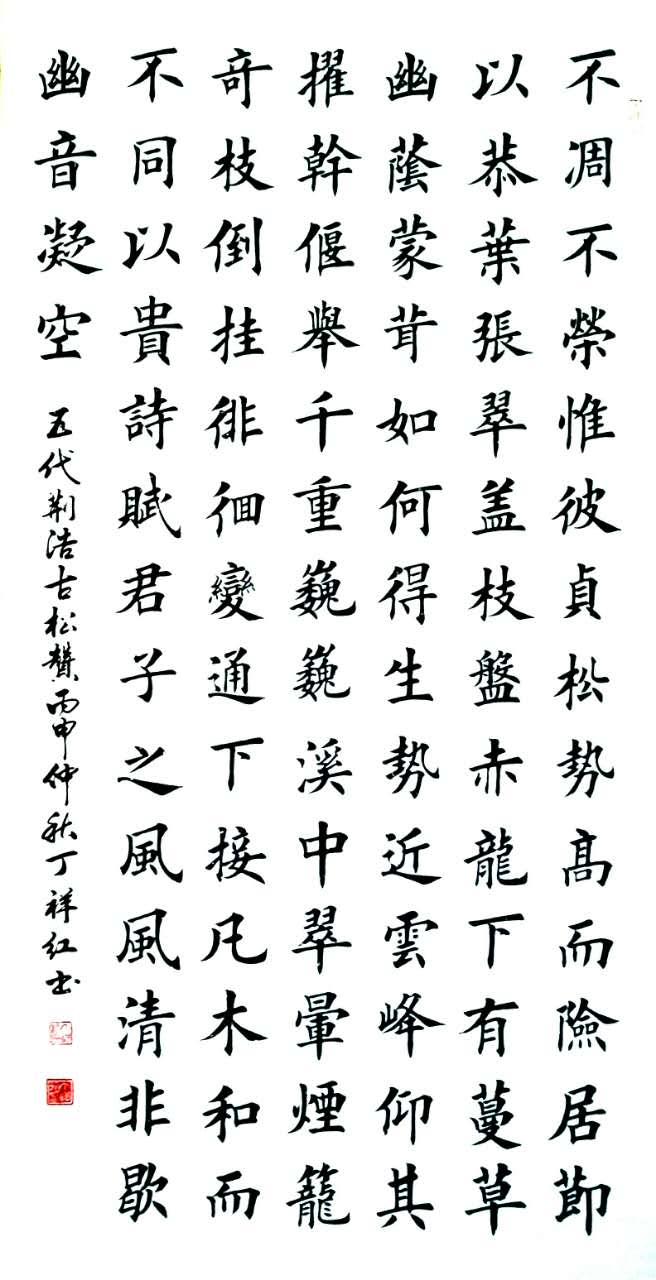 不凋不榮惟彼貞松勢高而險居節
以恭葉張翠盖枝盤赤龍下有蔓草
幽蔭蒙茸如何得生勢近雲峰仰其
擢幹偃舉千重巍巍溪中翠暈煙籠
奇枝倒挂徘徊變通下接凡木和而
不同以貴詩賦君子之風風清非歇
幽音凝空
五代荆浩古松贊丙申仲秋丁祥红书